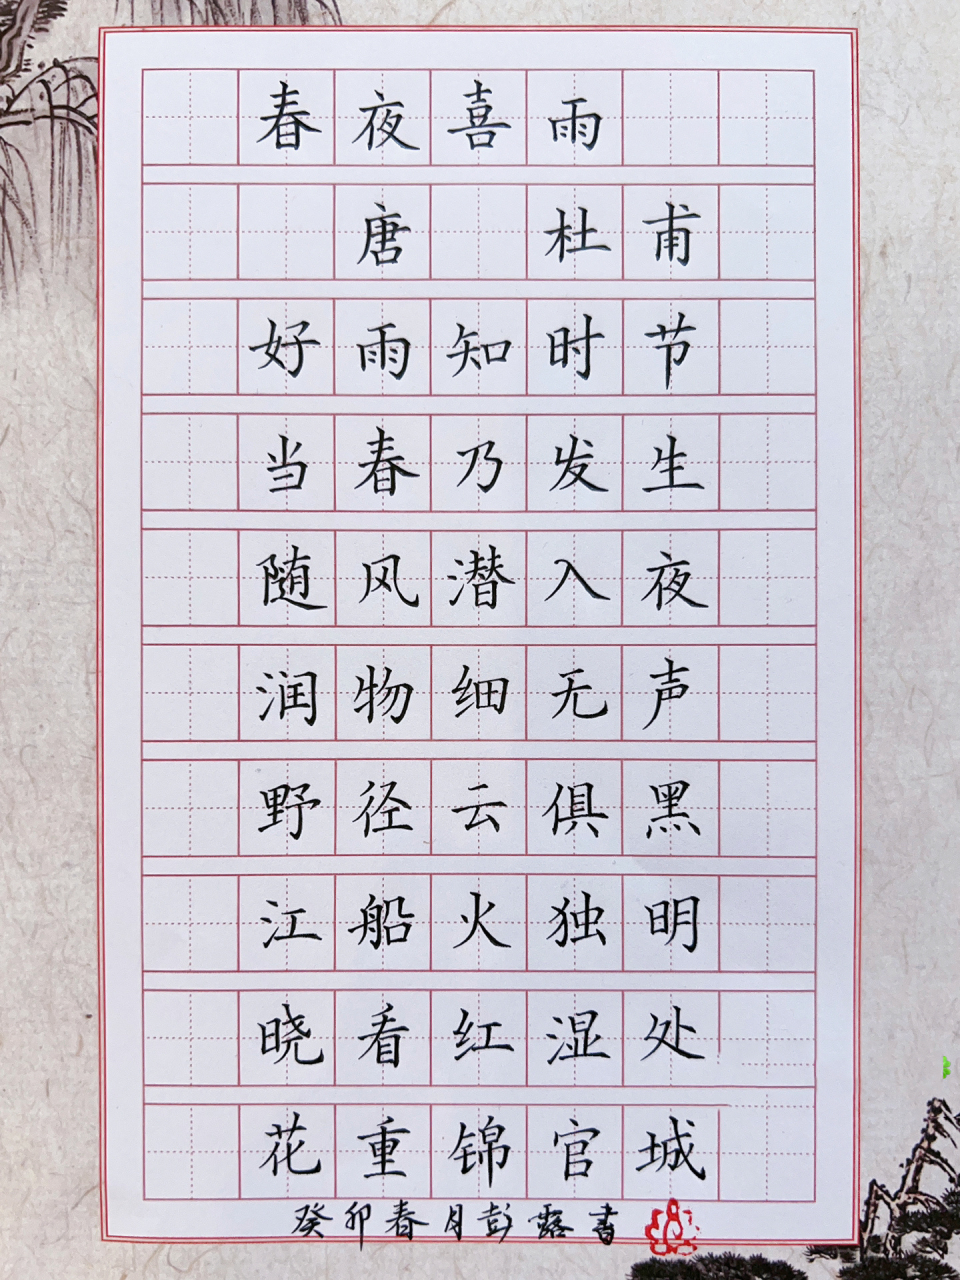 春夜喜雨
唐 杜甫
好雨知时节
当春乃发生
随风潜入夜
润物细无声
野径云俱黑
江船火独明
晓看红湿处
花重锦官城
癸卯春月彭露书